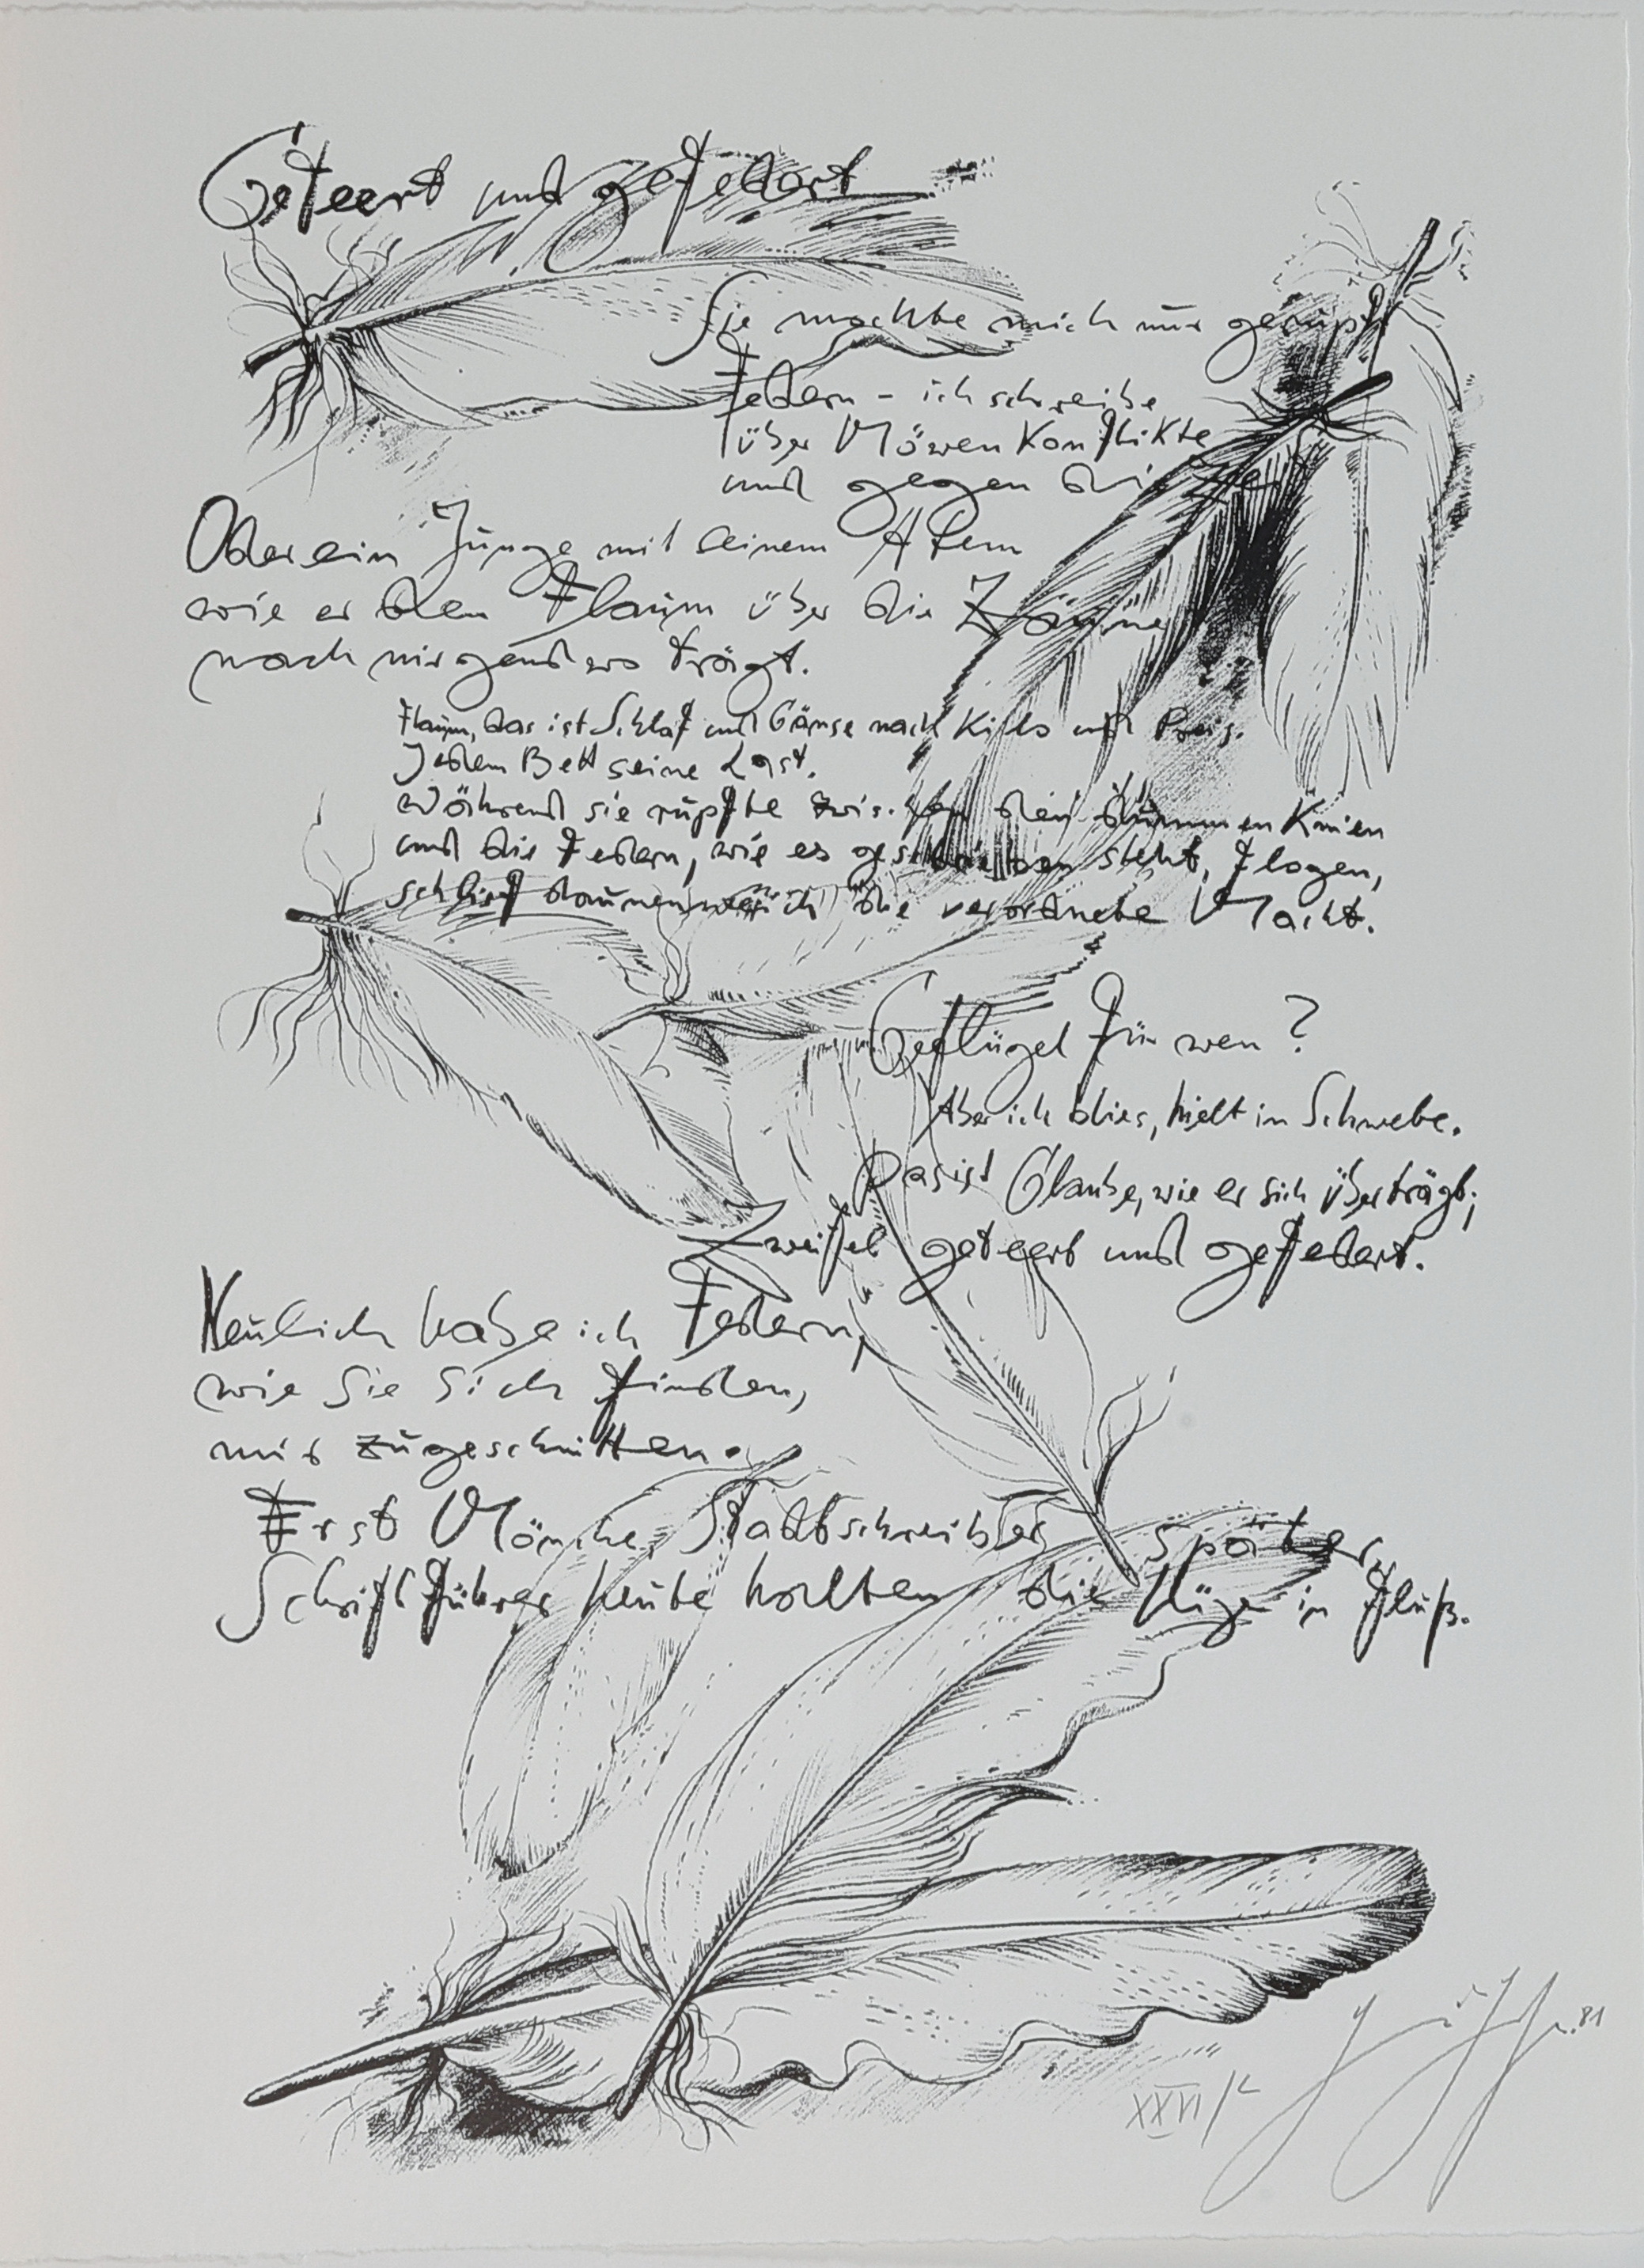 Geteert und gefedert
Sie mochte mich nur gerupft
Federn – ich schreibe
über Möwen Konflikte
und gegen die
Oder ein Junge mit seinem Atem
wie er den Flaum über die Zäune
nach nirgendwo trägt.
Flaum, das ist Schlaf und Gänse nach Kilo und Preis.
Jedem Bett seine Last.
Während sie rupfte zwischen den dummen Knien
und die Federn, wie es geschrieben steht, flogen,
schlief daunenweich die verordnete Macht.
Geflügel für wen?
Aber ich blies, hielt in Schwebe.
Das ist Glaube, wie er sich überträgt;
Zweifel geteert und gefedert.
Neulich habe ich Federn,
wie sie sich finden,
mir zugeschnitten.
Erst Mönche, Stadtschreiber später,
Schriftführer heute halten die Lüge in Fluß.
81
XXVI/L